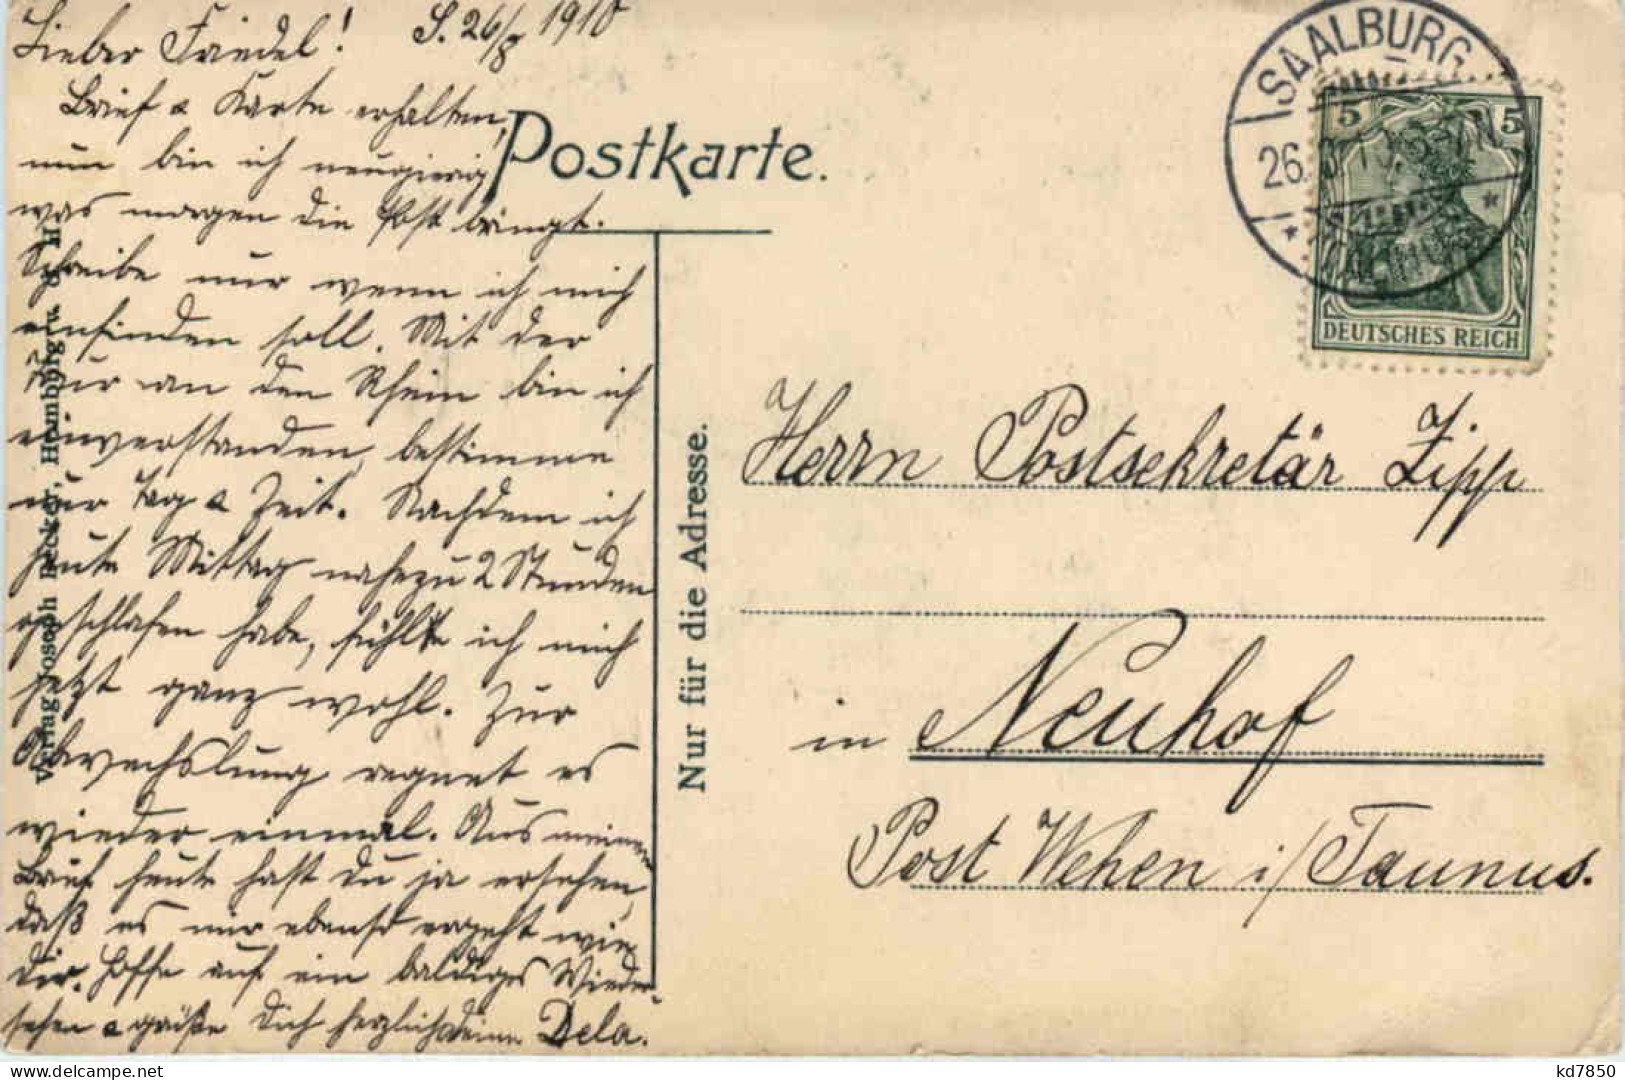 S. 26/8 1910
Lieber Friedel!
Brief & Karte erhalten,
nun bin ich neugierig
was morgen die Post bringt.
Schreibe nur wenn ich mich
einfinden soll. Mit der
Tour an den Rhein bin ich
einverstanden, bestimme
nur Tag & Zeit. Nachdem ich
heute Mittag nahezu 2 Stunden
geschlafen habe, fühlte ich mich
jetzt ganz wohl. Zur
Abwechslung regnet es
wieder einmal. Aus meinem
Brief heute hast Du ja ersehen,
daß es mir ebenso ergeht wie
Dir. Hoffe auf ein baldiges Wieder-
sehen & grüße Dich herzlich deine Dela.
Postkarte.
Verlag Joseph Becker, Homburg v. d. H.
Nur für die Adresse.
SAALBURG
26.8.10
(TAUNUS)
5 5
DEUTSCHES REICH
Herrn Postsekretär Zipp
in Neuhof
Post Wehen i/Taunus.
kd7850